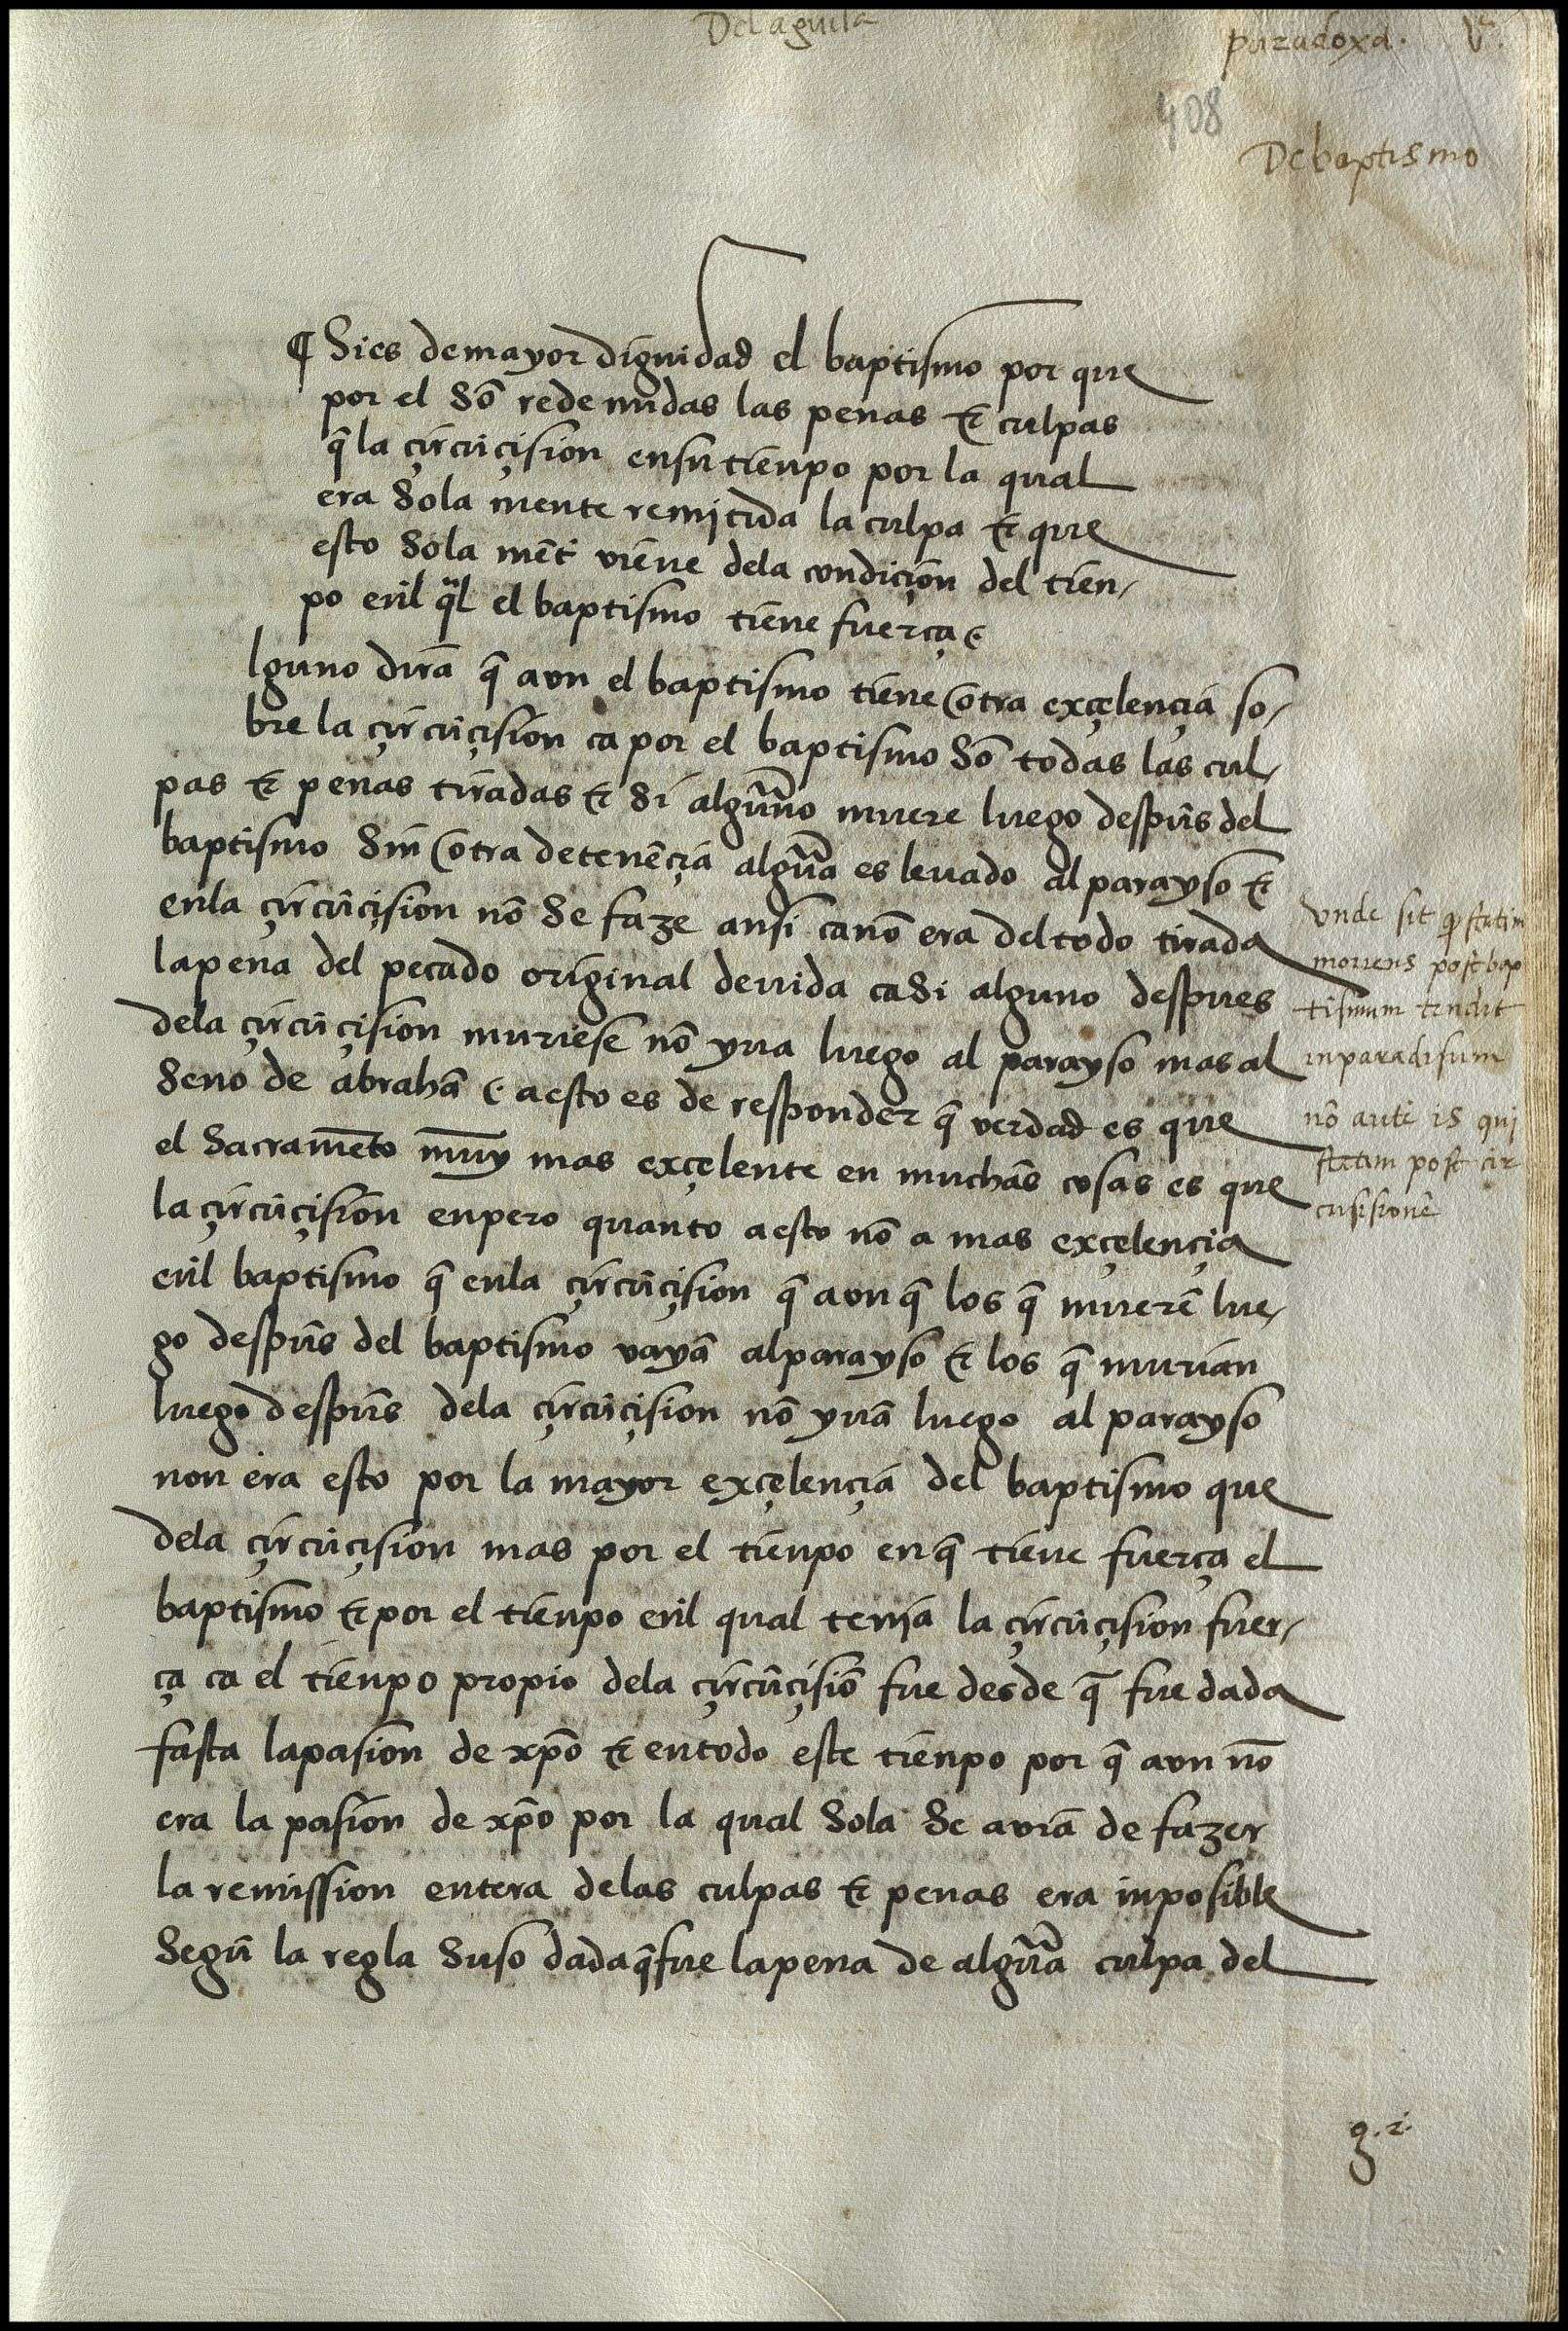 Del aguila
paradoxa. vª.
408
De baptismo
¶ Si es de mayor dignidad el baptismo por que
por el sõ redemidas las penas & culpas
q̃ la çircũçision en su tienpo por la qual
era sola mente remitida la culpa & que
esto sola mẽt viene dela condiçion del tien-
po enl q̃l el baptismo tiene fuerça.
lguno dirã q̃ avn el baptismo tiene otra exçelençia so-
bre la çircũçision ca por el baptismo sõ todas las cul-
pas & penas tiradas & si algũno muere luego despũs del
baptismo sin otra detenẽçia algũa es leuado al parayso &
enla çircũçision nõ se faze ansi ca nõ era del todo tirada
la pena del pecado original deuida ca si alguno despues
dela çircũçision muriese nõ yua luego al parayso mas al
seno de abrahã. a esto es de responder q̃ verdad es que
el sacramẽto muy mas exçelente en muchas cosas es que
la çircũçision enpero quanto a esto nõ a mas exçelençia
enl baptismo q̃ enla çircũçision q̃ avn q̃ los q̃ muerẽ lue-
go despũs del baptismo vayã al parayso & los q̃ murian
luego despũs dela çircũçision nõ yuã luego al parayso
non era esto por la mayor exçelençia del baptismo que
dela çircũçision mas por el tienpo en q̃ tiene fuerça el
baptismo & por el tienpo enl qual tenia la çircũçision fuer-
ça ca el tienpo propio dela çircũçisiõ fue desde q̃ fue dada
fasta la pasion de xp̃o & en todo este tienpo por q̃ avn nõ
era la pasion de xp̃o por la qual sola se avia de fazer
la remission entera delas culpas & penas era inposible
segũ la regla suso dada q̃ fue la pena de algũa culpa del
vnde sit q̃ statim
moriens post bap
tismum tendit
in paradisum
nõ autẽ is qui
statim post cir
cusisionẽ
g.2.